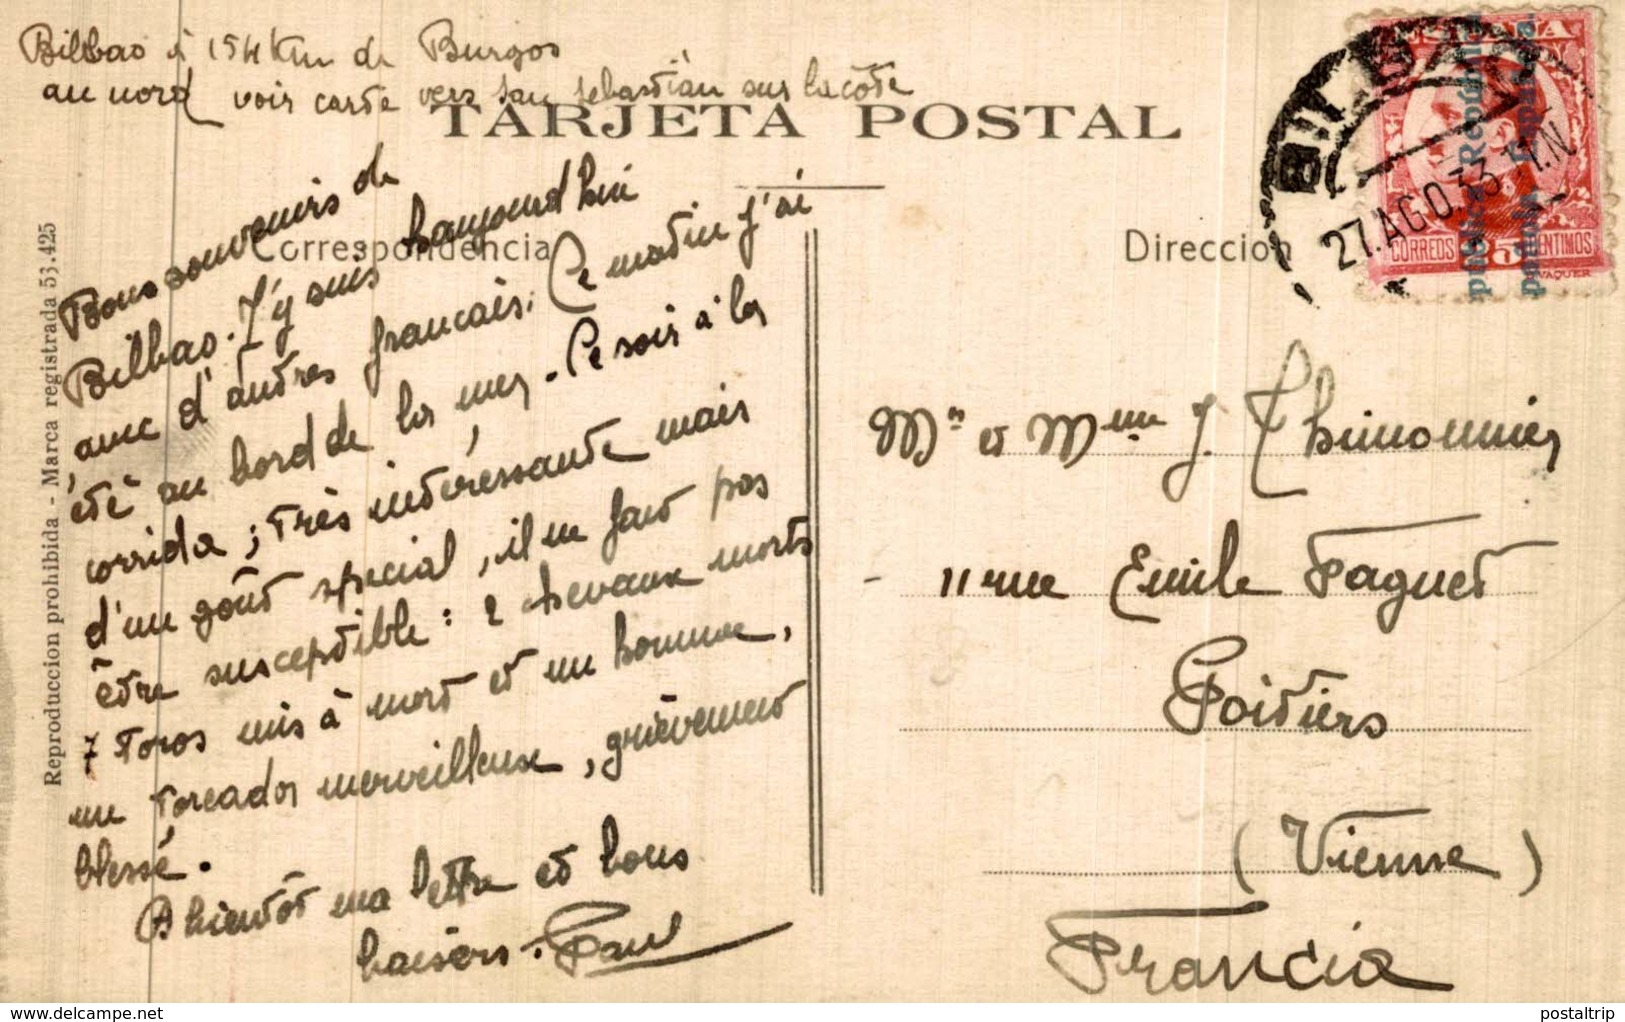 Bilbao à 154 Km de Burgos
au nord voir carte vers San Sebastián sur la côte
TARJETA POSTAL
Correspondencia
Bons souvenirs de
Bilbao. J'y suis aujourd'hui
avec d'autres francais. Ce matin j'ai
été au bord de la mer - Ce soir à la
corrida ; Très intéressante mais
d'un goût special, il ne faut pas
être susceptible : 2 chevaux morts
7 Toros mis à mort et un homme,
un Toreador merveilleux, grièvement
blessé.
A bientôt ma lettre et bons
baisers. Paul
Reproduccion prohibida - Marca registrada 53.425
Direccion
ESPAÑA
República Española
CORREOS 25 CENTIMOS
VAQUER
BILBAO
27.AGO.33.11.N
Mr et Mme J. Thimonnier
11 rue Emile Faguet
Poitiers
(Vienne)
Francia
postaltrip